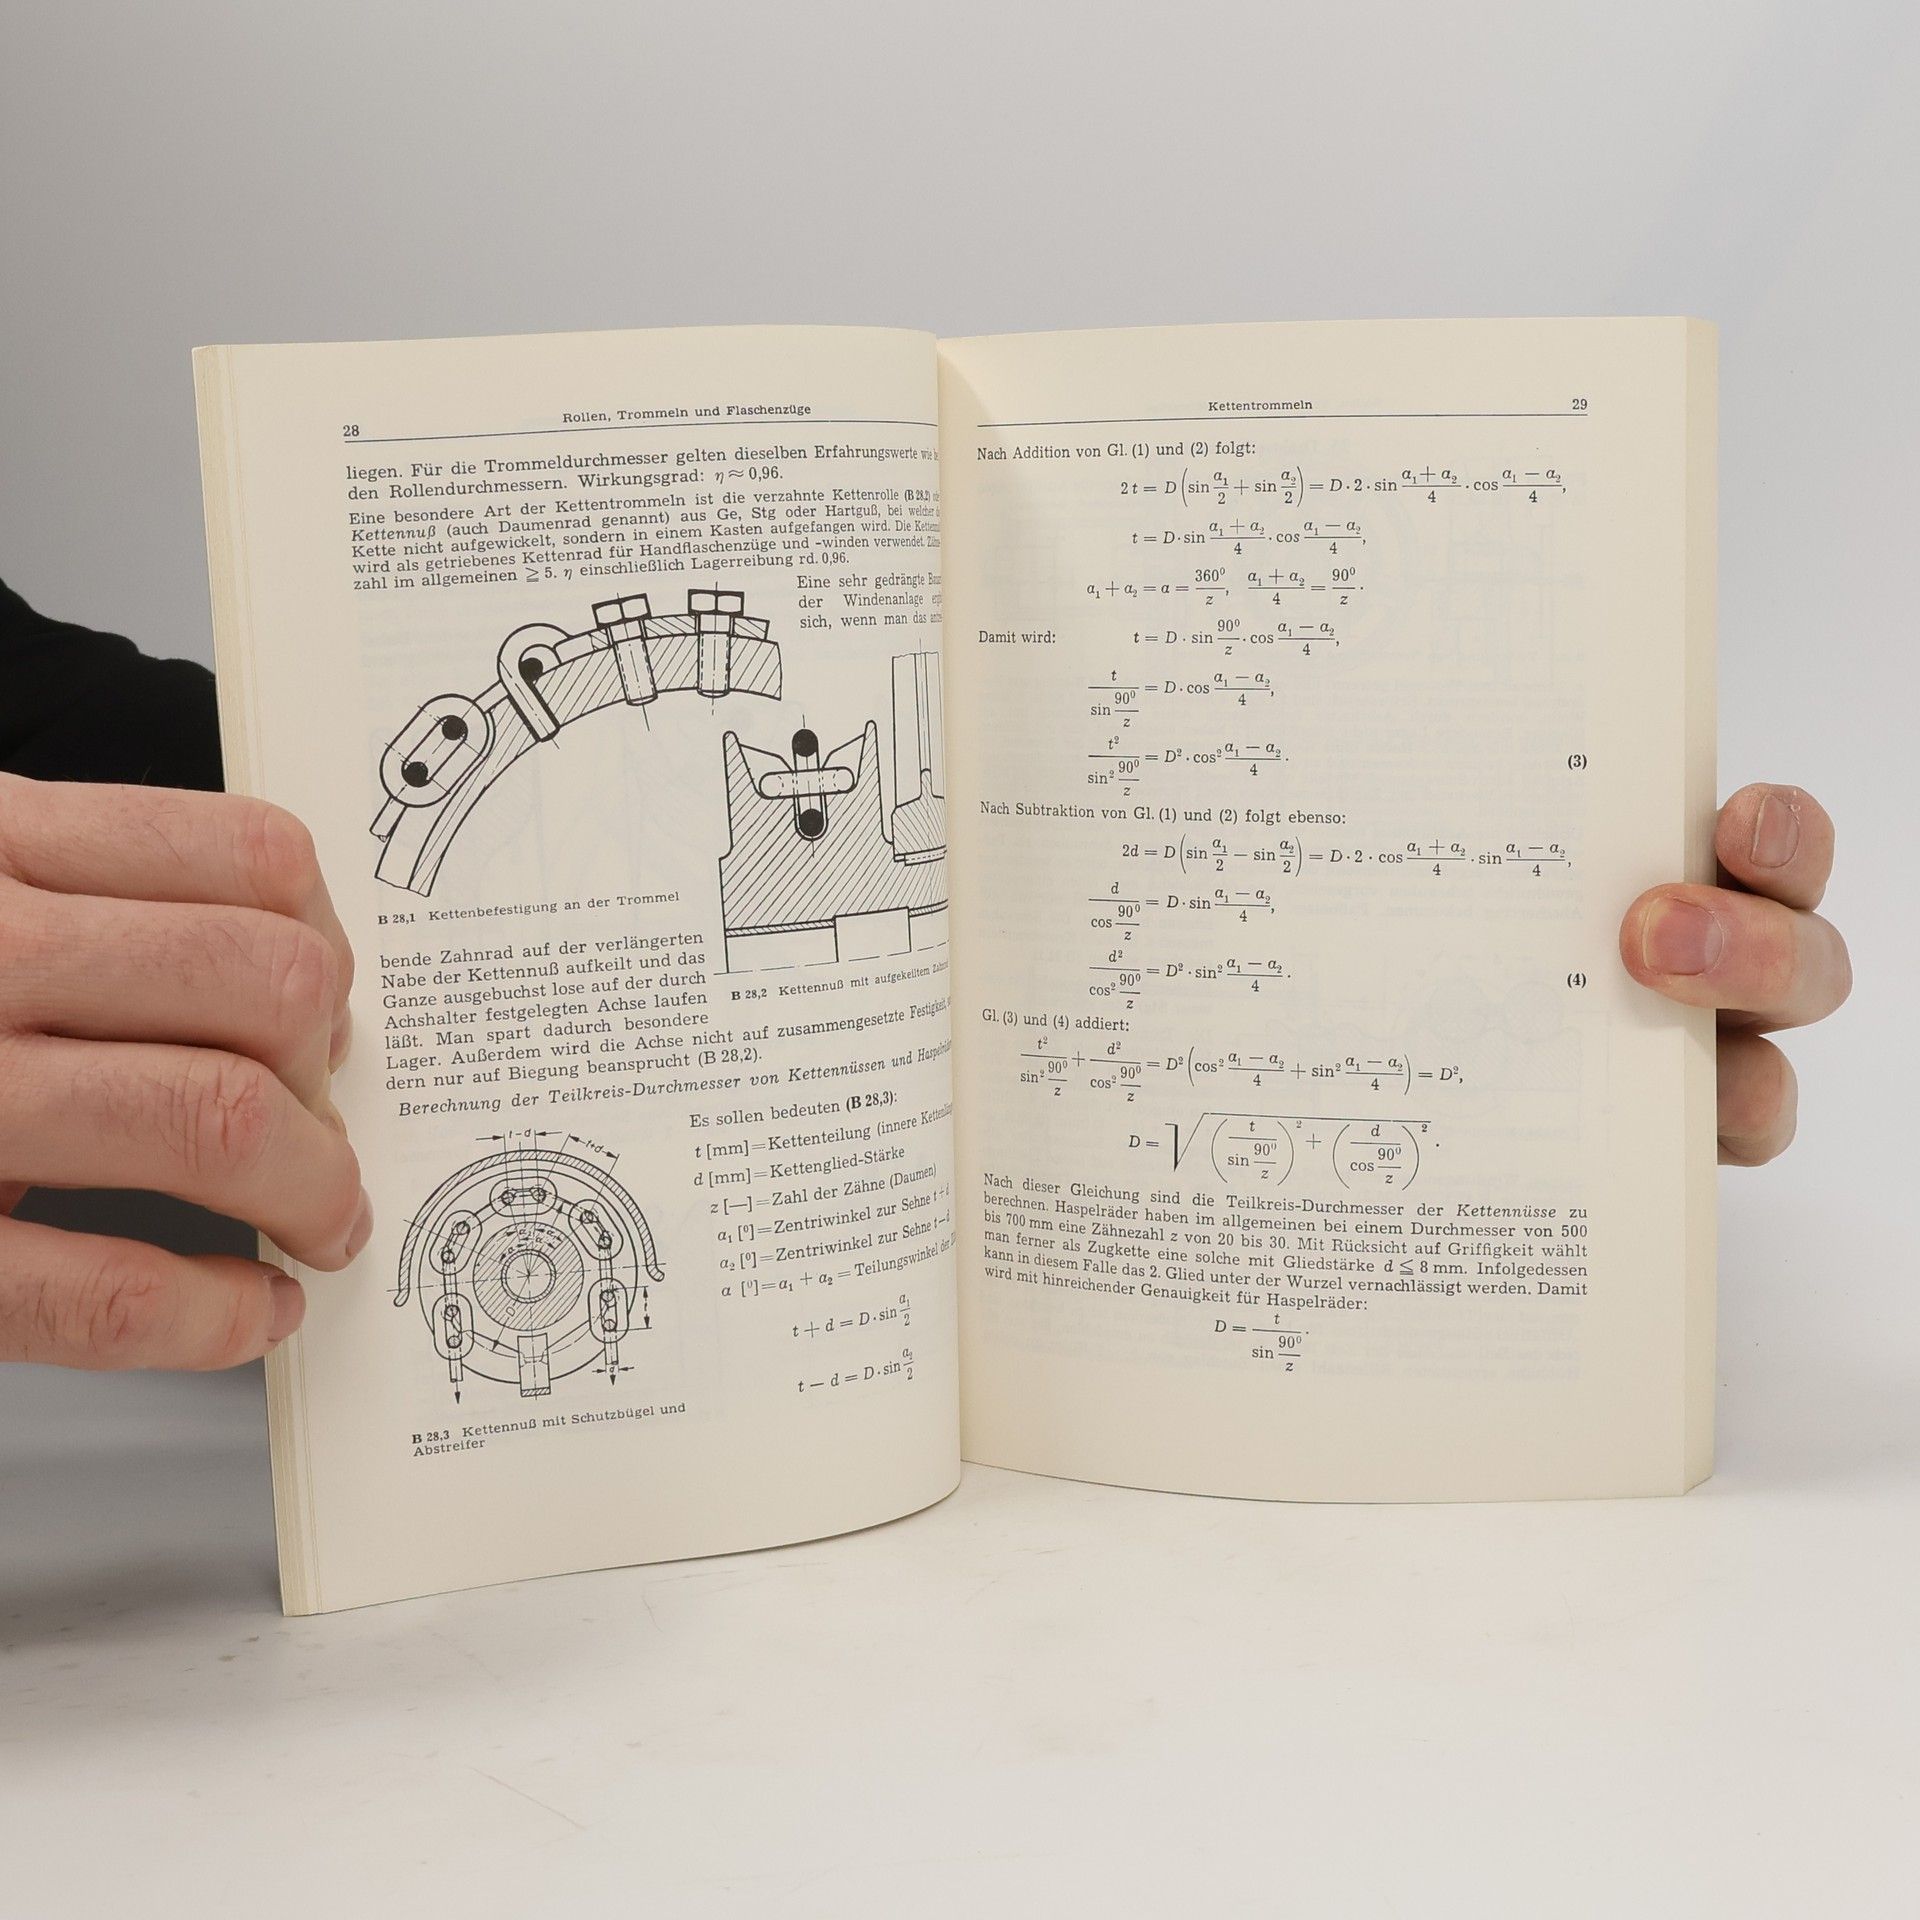 28
Rollen, Trommeln und Flaschenzüge
liegen. Für die Trommeldurchmesser gelten dieselben Erfahrungswerte wie
den Rollendurchmessern. Wirkungsgrad: η ≈ 0,96.
Eine besondere Art der Kettentrommeln ist die verzahnte Kettenrolle (B 28,2)
Kettennuß (auch Daumenrad genannt) aus Ge, Stg oder Hartguß, bei welcher
Kette nicht aufgewickelt, sondern in einem Kasten aufgefangen wird. Die
wird als getriebenes Kettenrad für Handflaschenzüge und -winden verwendet.
zahl im allgemeinen ≧ 5. η einschließlich Lagerreibung rd. 0,96.
Eine sehr gedrängte
der Windenanlage
sich, wenn man das
B 28,1 Kettenbefestigung an der Trommel
bende Zahnrad auf der verlängerten
Nabe der Kettennuß aufkeilt und das
Ganze ausgebuchst lose auf der durch
Achshalter festgelegten Achse laufen
B 28,2 Kettennuß mit aufgekeiltem
läßt. Man spart dadurch besondere
Lager. Außerdem wird die Achse nicht auf zusammengesetzte Festigkeit,
dern nur auf Biegung beansprucht (B 28,2).
Berechnung der Teilkreis-Durchmesser von Kettennüssen und
t−d
t+d
B 28,3 Kettennuß mit Schutzbügel und
Abstreifer
Es sollen bedeuten (B 28,3):
t [mm] = Kettenteilung (innere
d [mm] = Kettenglied-Stärke
z [—] = Zahl der Zähne (Daumen)
α₁ [⁰] = Zentriwinkel zur Sehne t + d
α₂ [⁰] = Zentriwinkel zur Sehne t − d
α [⁰] = α₁ + α₂ = Teilungswinkel der
t + d = D · sin α₁/2
t − d = D · sin α₂/2
Kettentrommeln
29
Nach Addition von Gl. (1) und (2) folgt:
2 t = D (sin α₁/2 + sin α₂/2) = D · 2 · sin (α₁ + α₂)/4 · cos (α₁ − α₂)/4,
t = D · sin (α₁ + α₂)/4 · cos (α₁ − α₂)/4,
α₁ + α₂ = α = 360⁰/z, (α₁ + α₂)/4 = 90⁰/z.
Damit wird: t = D · sin 90⁰/z · cos (α₁ − α₂)/4,
t/(sin 90⁰/z) = D · cos (α₁ − α₂)/4,
t²/(sin² 90⁰/z) = D² · cos² (α₁ − α₂)/4. (3)
Nach Subtraktion von Gl. (1) und (2) folgt ebenso:
2d = D (sin α₁/2 − sin α₂/2) = D · 2 · cos (α₁ + α₂)/4 · sin (α₁ − α₂)/4,
d/(cos 90⁰/z) = D · sin (α₁ − α₂)/4,
d²/(cos² 90⁰/z) = D² · sin² (α₁ − α₂)/4. (4)
Gl. (3) und (4) addiert:
t²/(sin² 90⁰/z) + d²/(cos² 90⁰/z) = D² (cos² (α₁ − α₂)/4 + sin² (α₁ − α₂)/4) = D²,
D = √((t/(sin 90⁰/z))² + (d/(cos 90⁰/z))²).
Nach dieser Gleichung sind die Teilkreis-Durchmesser der Kettennüsse zu
berechnen. Haspelräder haben im allgemeinen bei einem Durchmesser von 500
bis 700 mm eine Zähnezahl z von 20 bis 30. Mit Rücksicht auf Griffigkeit wählt
man ferner als Zugkette eine solche mit Gliedstärke d ≦ 8 mm. Infolgedessen
kann in diesem Falle das 2. Glied unter der Wurzel vernachlässigt werden. Damit
wird mit hinreichender Genauigkeit für Haspelräder:
D = t/(sin 90⁰/z).